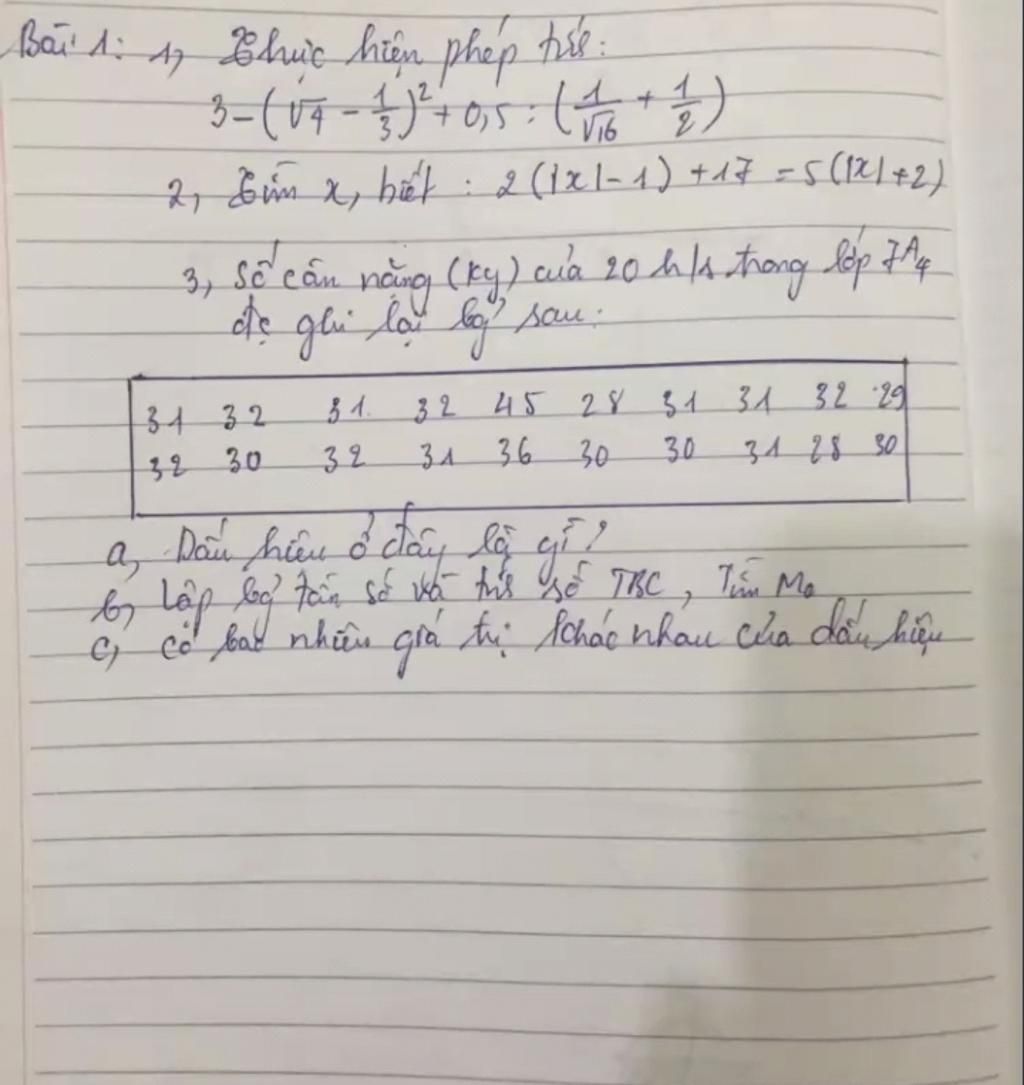 Bài 1: 1, Thực hiện phép tính:
3-(√4 - 1/3)² + 0,5 : (1/√16 + 1/2)
2, Tìm x, biết : 2(|x|-1) +17 = 5(|x|+2)
3, Số cân nặng (kg) của 20 h/s trong lớp 7A4
đc ghi lại bg sau:
31 32 31 32 45 28 31 31 32 29
32 30 32 31 36 30 30 31 28 30
a, Dấu hiệu ở đây là gì?
b, Lập bg tần số và tính số TBC, Tìm Mo
c, có bao nhiêu giá trị khác nhau của dấu hiệu